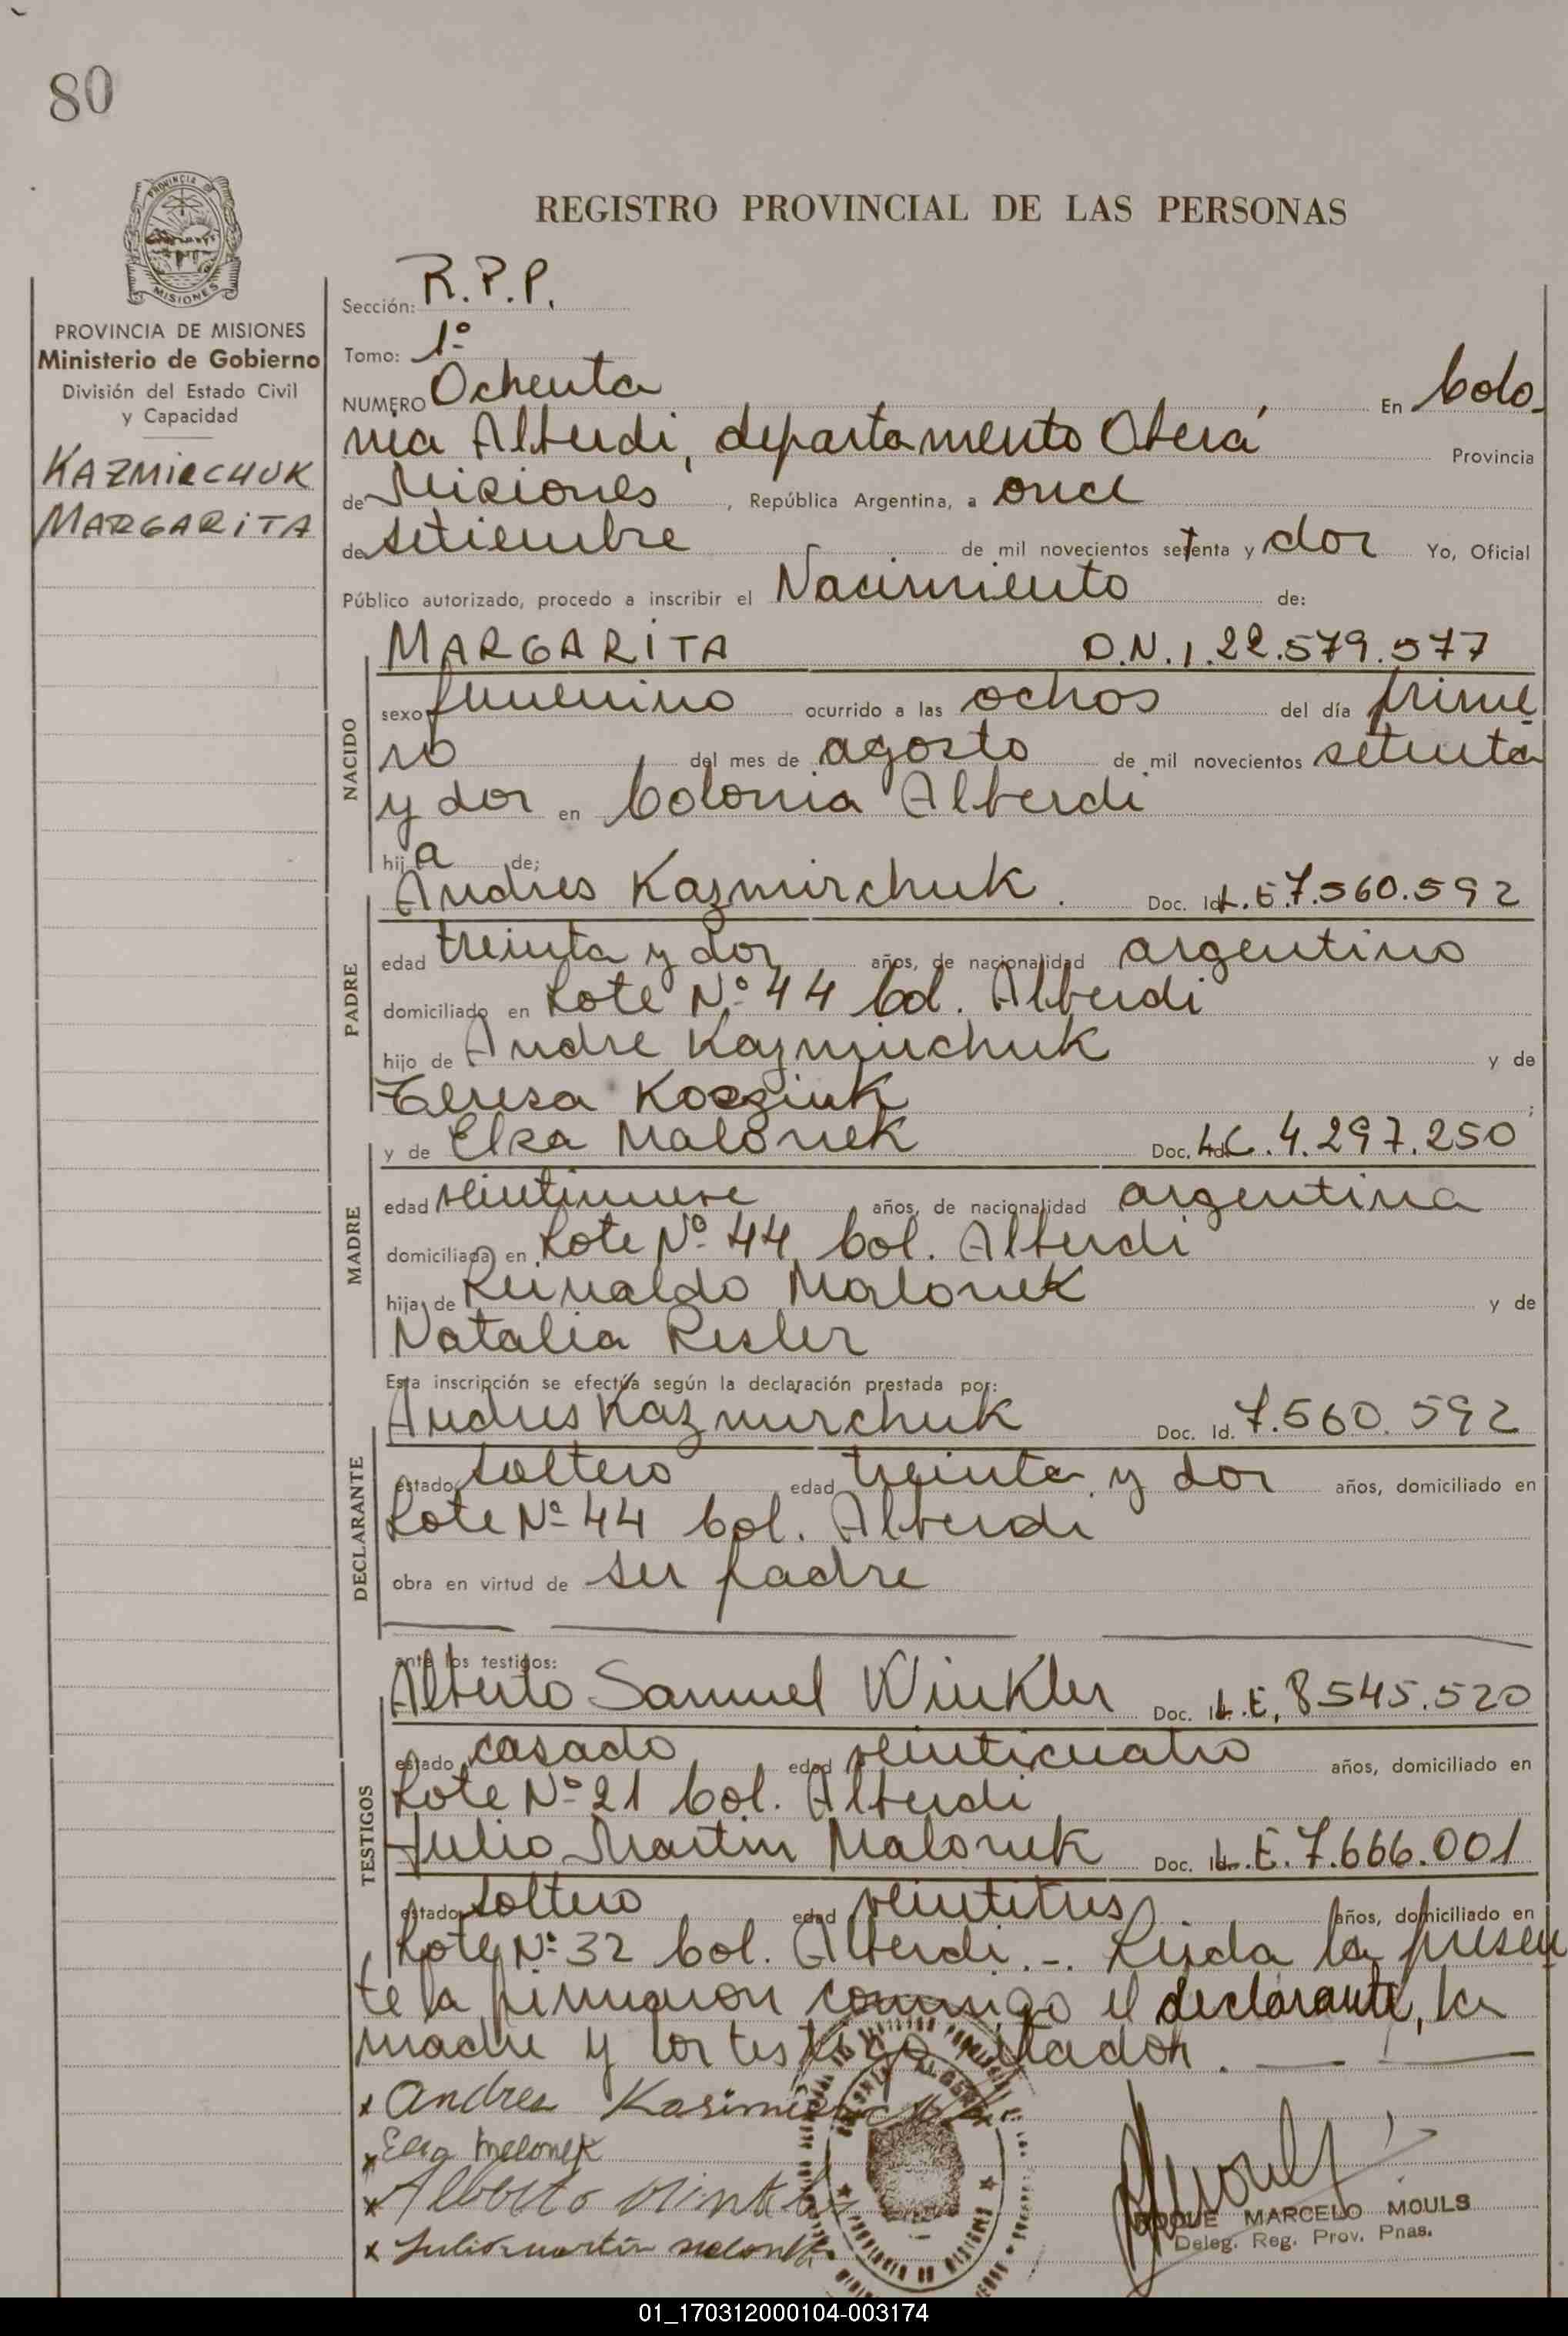 80
PROVINCIA DE MISIONES
Ministerio de Gobierno
División del Estado Civil
y Capacidad
KAZMIRCHUK
MARGARITA
REGISTRO PROVINCIAL DE LAS PERSONAS
Sección: R.P.P.
Tomo: 1º
NUMERO Ochenta En Colo
nia Alberdi, departamento Oberá Provincia
de Misiones, República Argentina, a once
de setiembre de mil novecientos setenta y dos Yo, Oficial
Público autorizado, procedo a inscribir el Nacimiento de:
NACIDO
MARGARITA D.N.I. 22.579.577
sexo femenino ocurrido a las ochos del día prime
ro del mes de agosto de mil novecientos setenta
y dos en Colonia Alberdi
hija de;
PADRE
Andres Kazmirchuk. Doc. Id. L.E 7.560.592
edad treinta y dos años, de nacionalidad argentino
domiciliado en Lote Nº 44 Col. Alberdi
hijo de Andre Kazmirchuk y de
Teresa ;
MADRE
y de Elsa Malonek Doc. Id. L.C. 4.297.250
edad veintinueve años, de nacionalidad argentina
domiciliada en Lote Nº 44 Col. Alberdi
hija de Reinaldo Malonek y de
Natalia Resler
Esta inscripción se efectúa según la declaración prestada por:
DECLARANTE
Andres Kazmirchuk Doc. Id. 7.560.592
estado soltero edad treinta y dos años, domiciliado en
Lote Nº 44 Col. Alberdi
obra en virtud de ser padre
ante los testigos:
TESTIGOS
Alberto Samuel Winkler Doc. Id. L.E. 8545.520
estado casado edad veinticuatro años, domiciliado en
Lote Nº 21 Col. Alberdi
Julio Martin Malonek Doc. Id. L.E. 7.666.001
estado soltero edad veintitres años, domiciliado en
Lote Nº 32 Col. Alberdi.-. Leida la presen
te la firmaron conmigo el declarante, la
madre y los testigo citados.
x Andres
x Elsa Melonek
x Alberto
x Julio martin
ROQUE MARCELO MOULS
Deleg. Reg. Prov. Pnas.
01_170312000104-003174